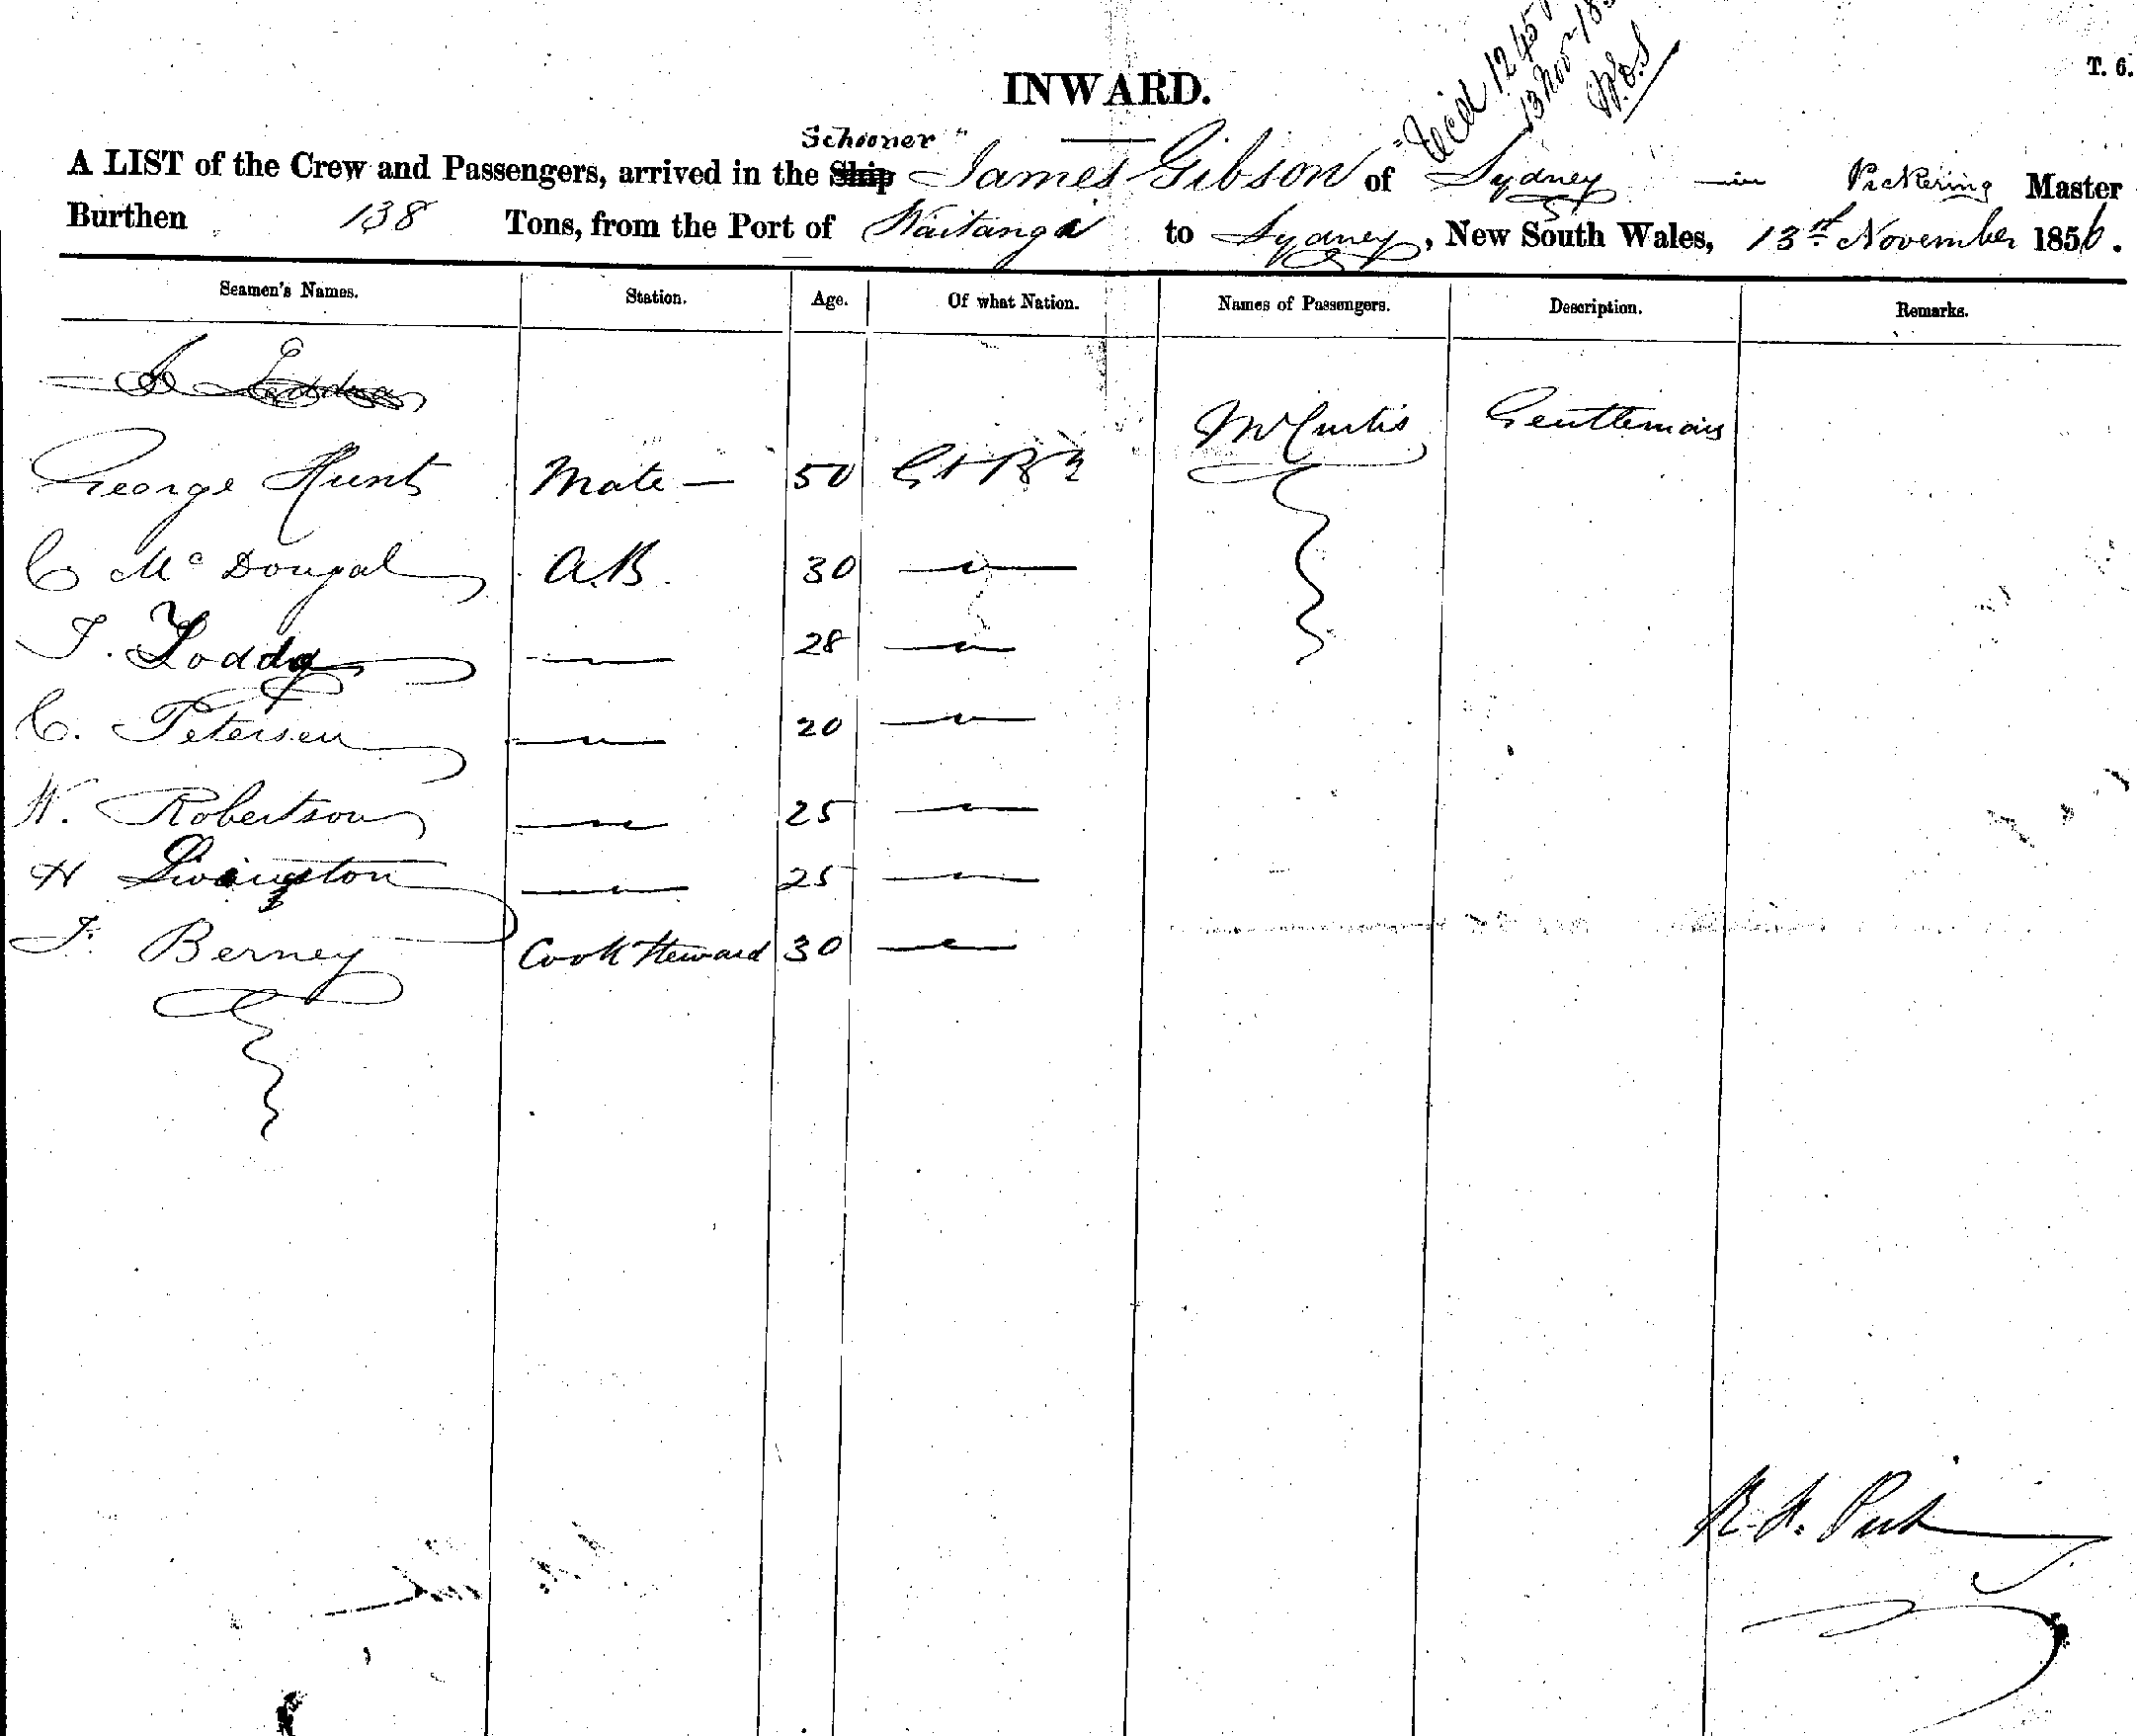 T. 6.
Rec'd 1245
13 Nov 185
INWARD.
Schooner "
A LIST of the Crew and Passengers, arrived in the Ship James Gibson of Sydney Pickering Master
Burthen 138 Tons, from the Port of Waitangi to Sydney, New South Wales, 13th November 1856.
Seamen's Names. Station. Age. Of what Nation. Names of Passengers. Description. Remarks.
Mr Curtis Gentleman
George Hunt Mate — 50 Gt Bn
C McDougal A.B. 30 — " —
T. Loddy — " — 28 — " —
C. Petersen — " — 20 — " —
W. Robertson — " — 25 — " —
H Livingston — " — 25 — " —
J. Berney Cook Steward 30 — " —